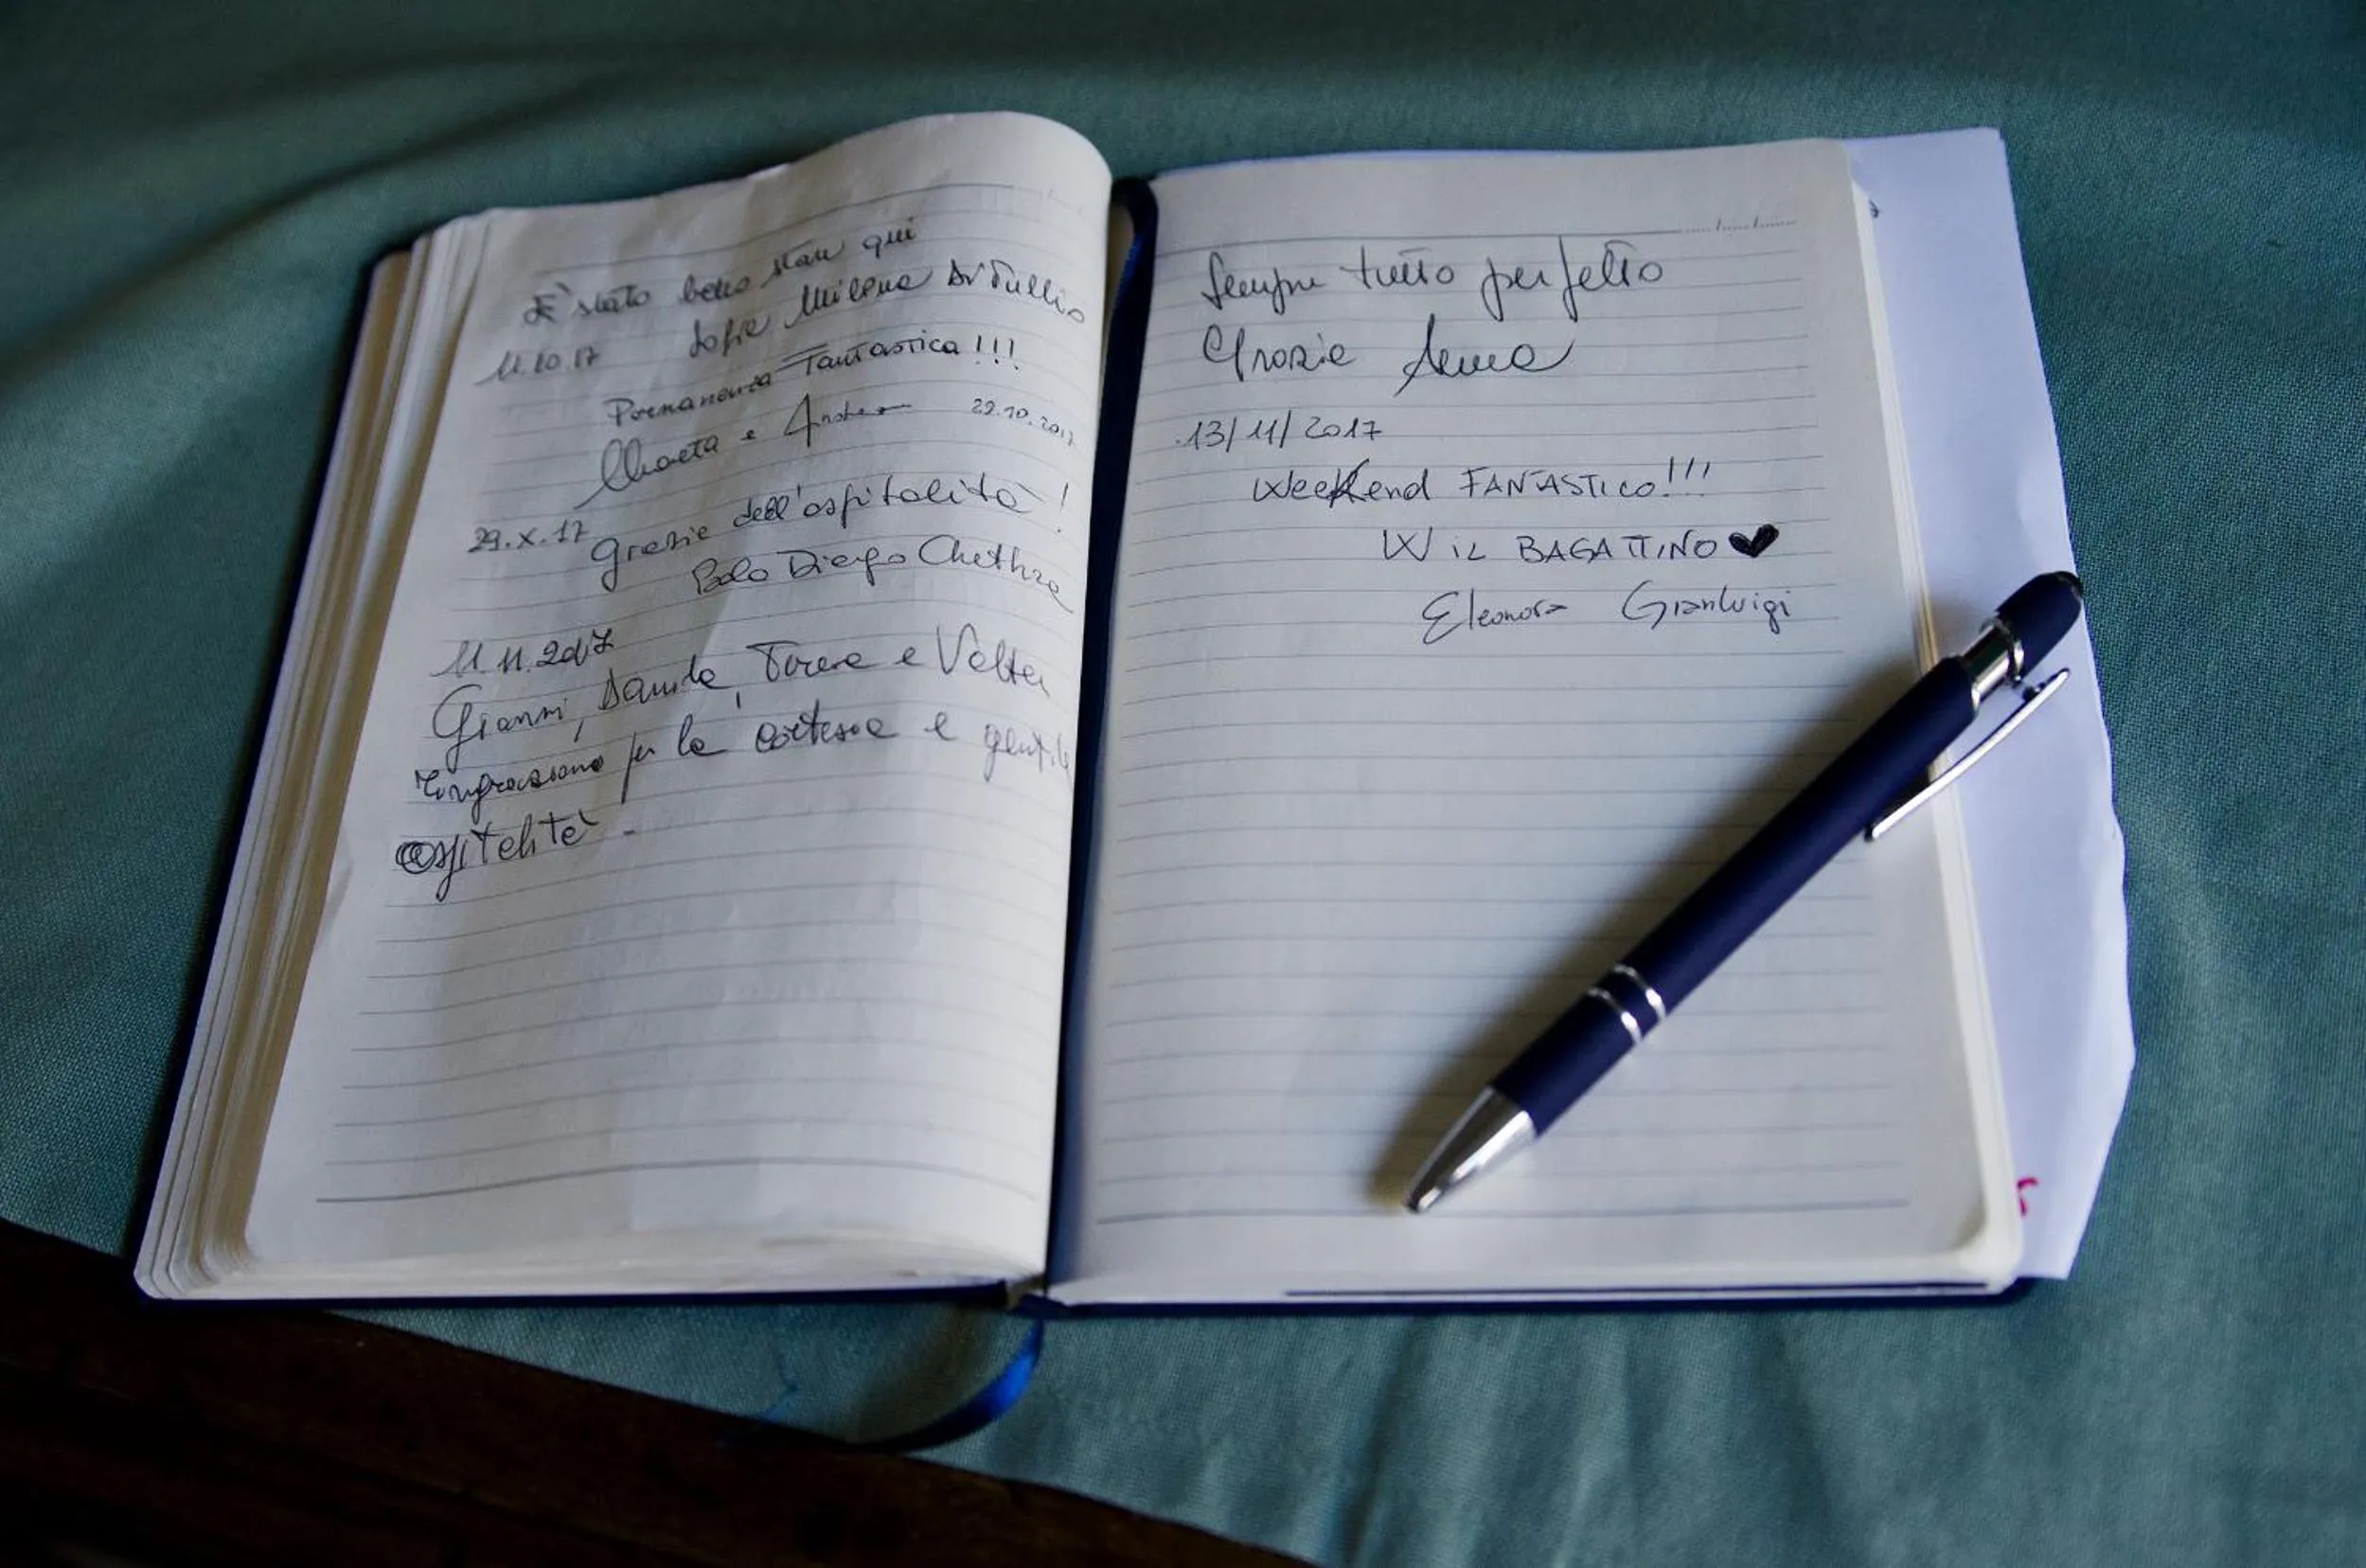 È stato bello stare qui
11.10.17 Sofia Milena Di Tullio
Permanenza Fantastica!!!
e Andrea 29.10.2017
29.X.17 grazie dell'ospitalità!
Diego
11.11.2017
Gianni, Danila, e Valter
ringraziano per la cortesia e gentile
ospitalità -
Sempre tutto perfetto
Grazie Anna
13/11/2017
WeeKend FANTASTICO!!!
W iL BAGATTINO ♥
Eleonora Gianluigi